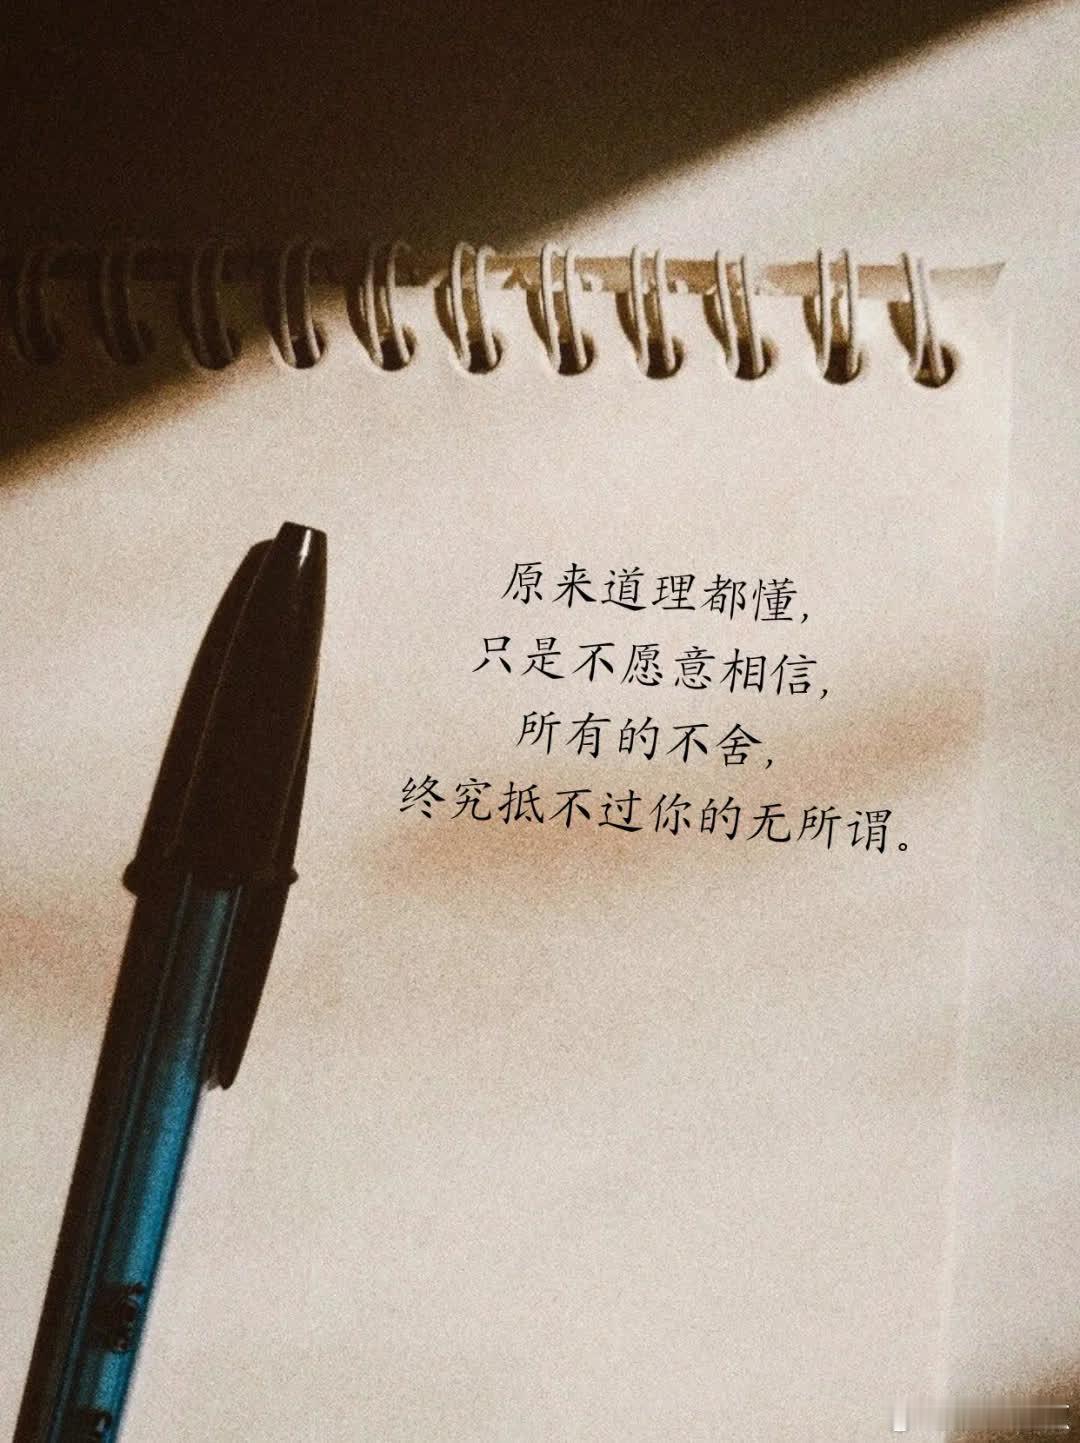 原来道理都懂，
只是不愿意相信，
所有的不舍，
终究抵不过你的无所谓。